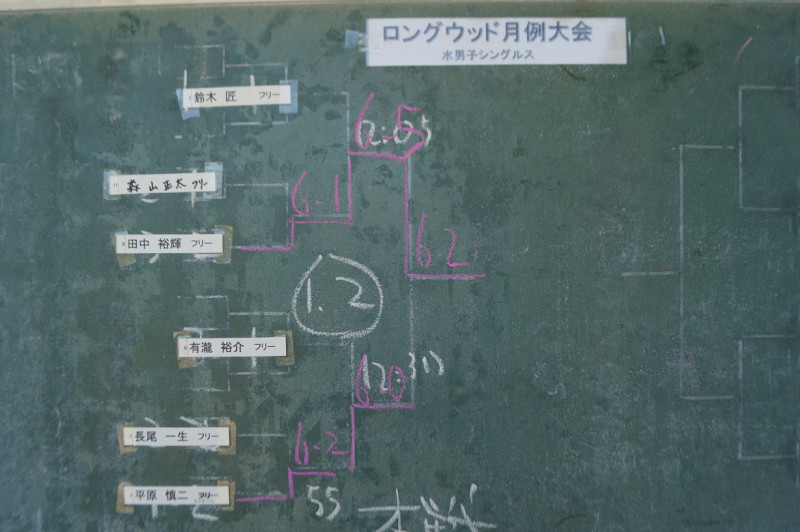 ロングウッド月例大会
水男子シングルス
鈴木 匠 フリー
6-5
森山 正太 フリー
6-1
田中 裕輝 フリー
6 2
1.2
有瀧 裕介 フリー
6-0
長尾 一生 フリー
6-2
平原 慎二 フリー
55
本戦